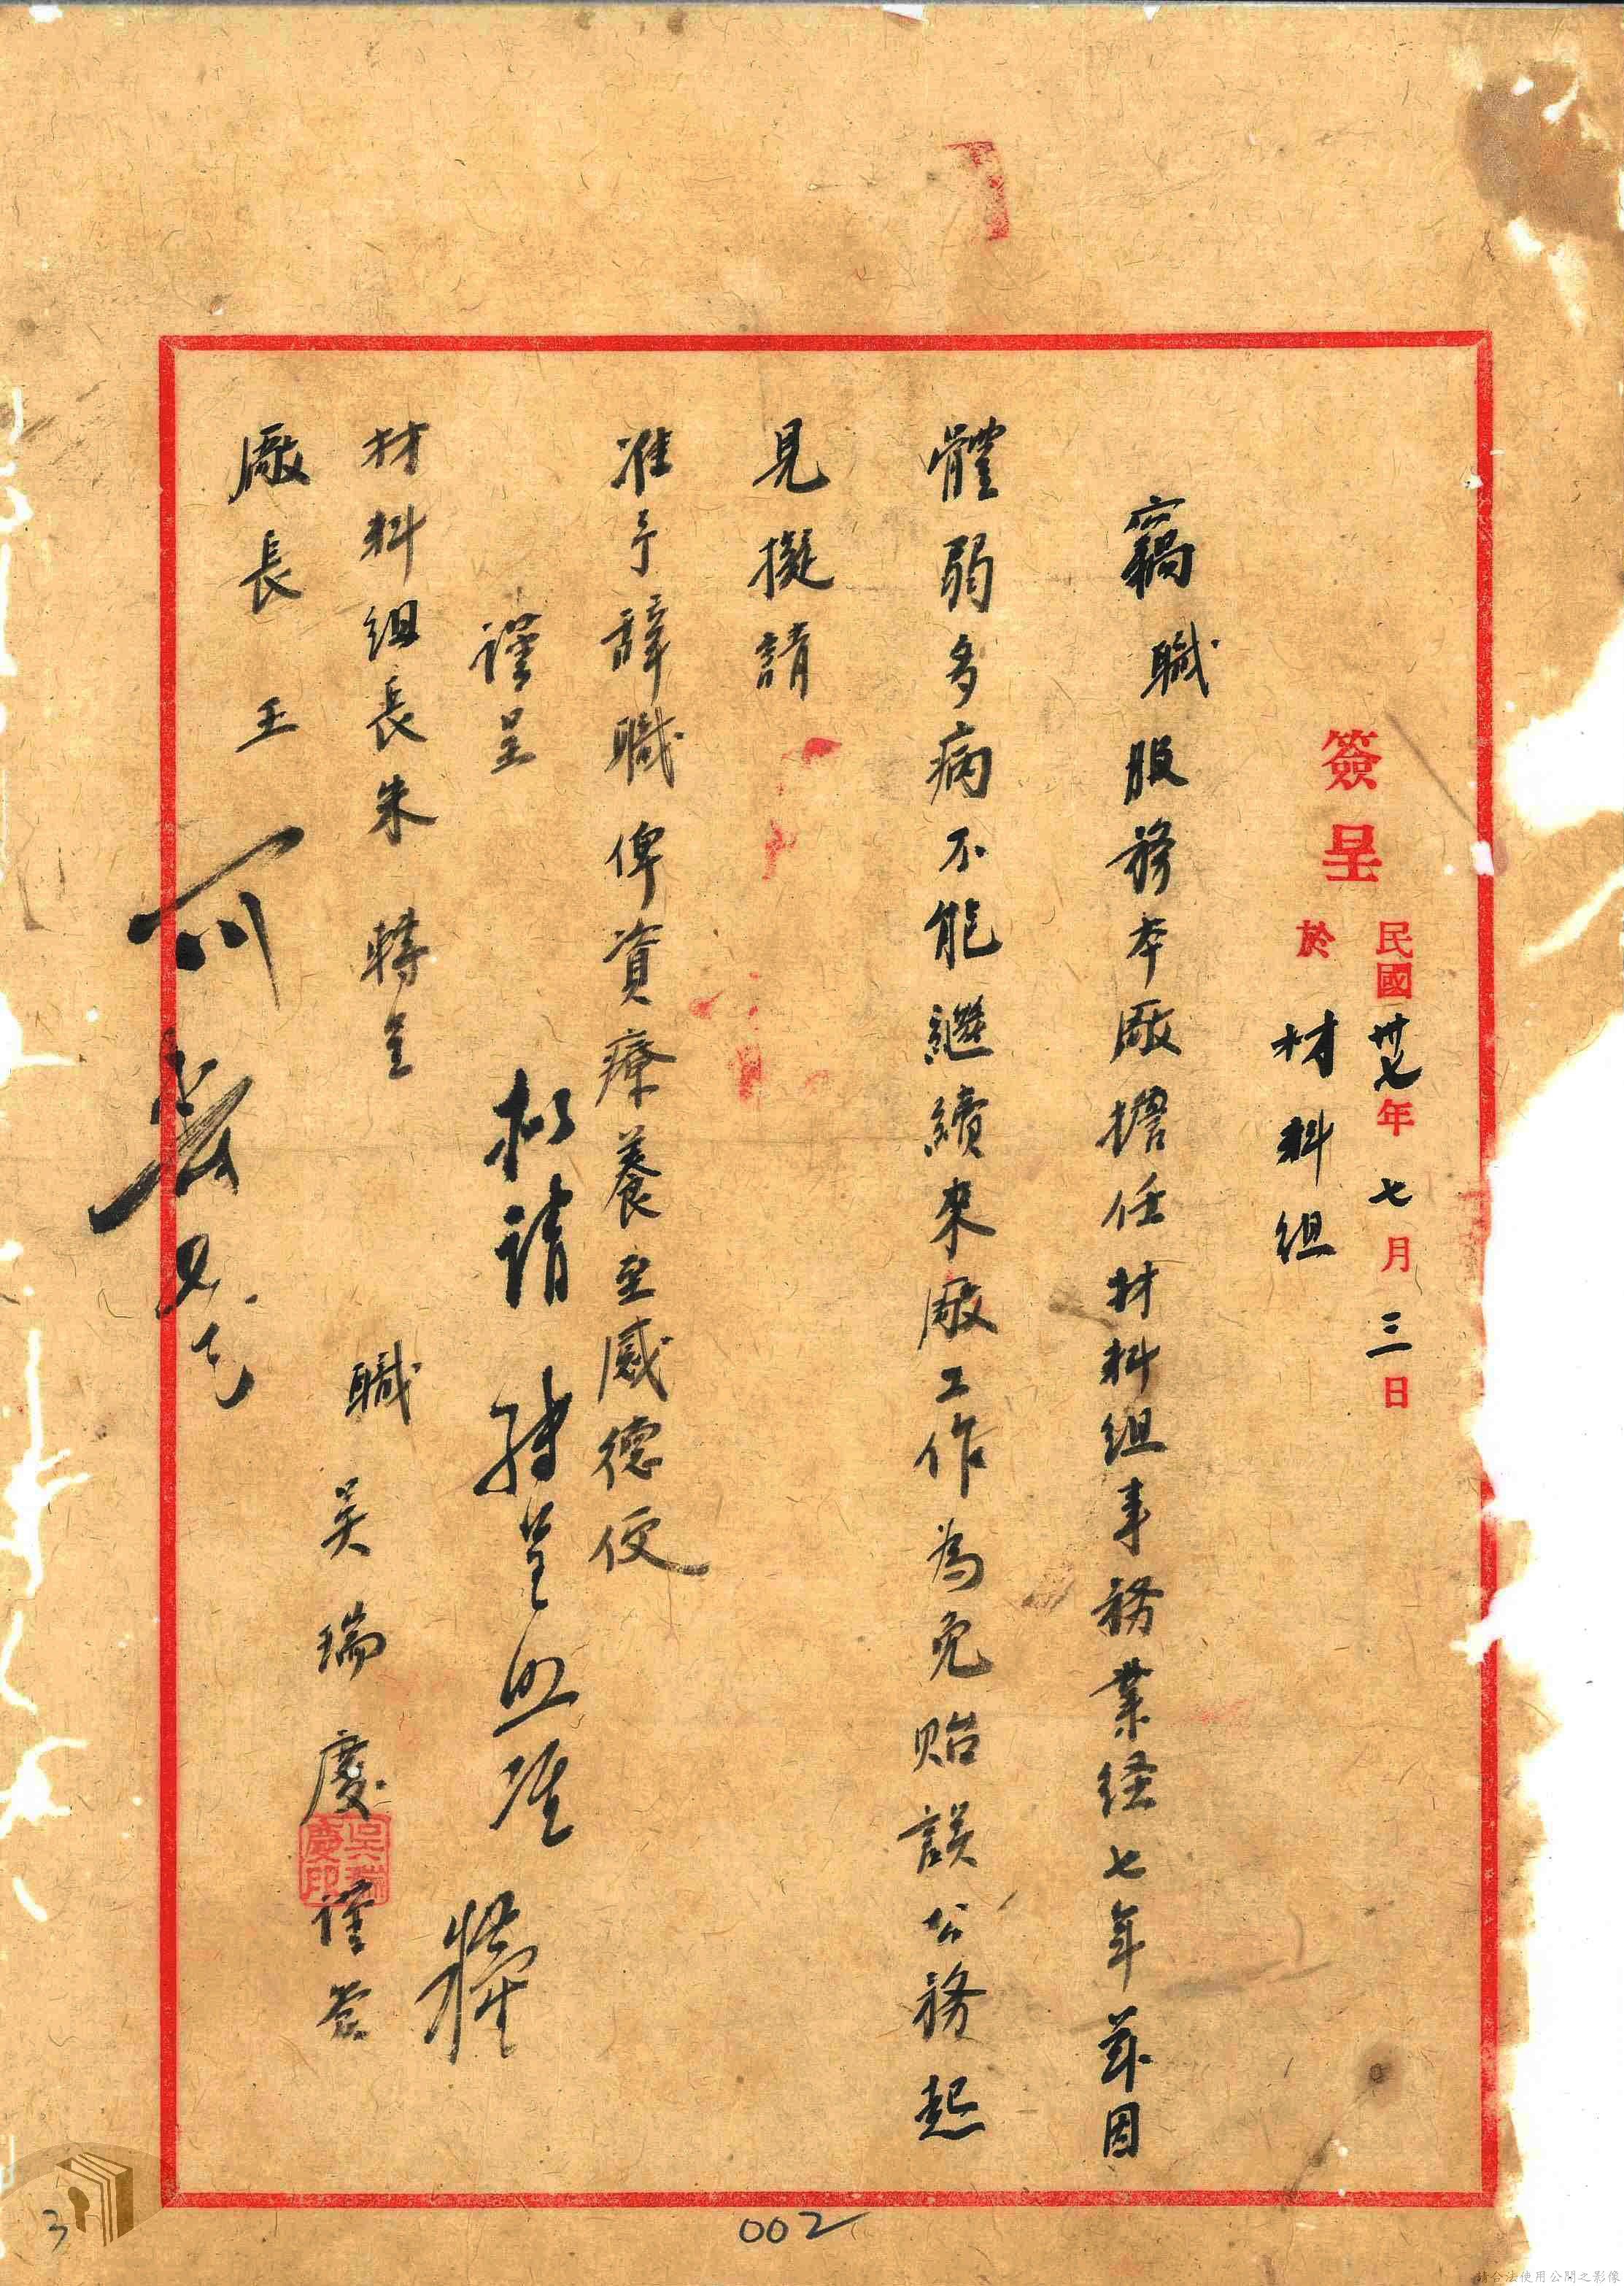 簽呈
民國卅七年七月三日
於材料組
竊職服務本廠擔任材料組事務業經七年茲因
體弱多病不能繼續來廠工作為免貽誤公務起
見擬請
准予辭職俾資療養至感德便
謹呈
擬請 轉呈照准
材料組長朱 轉呈
廠長 王
職 吳瑞慶 謹簽
吳瑞慶印
可
002
3
請合法使用公開之影像